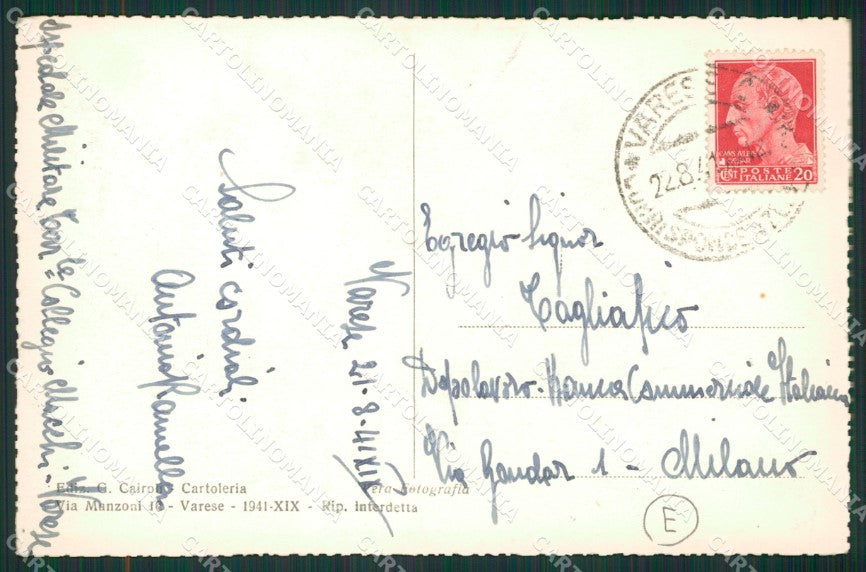 Varese 21-8-41 XIX
Saluti cordiali
Antonio Ramella
Ospedale Militare Terr.le Collegio Macchi - Varese
Egregio Signor
Tagliafico
Dopolavoro - Banca Commerciale Italiana
Via Gondar 1 - Milano
E
VARESE
CORRISPONDENZE
22.8.41
POSTE
ITALIANE
CENT 20
Ediz. G. Cairoli - Cartoleria
Via Manzoni 10 - Varese - 1941-XIX - Rip. interdetta
Vera Fotografia
CARTOLINOMANIA